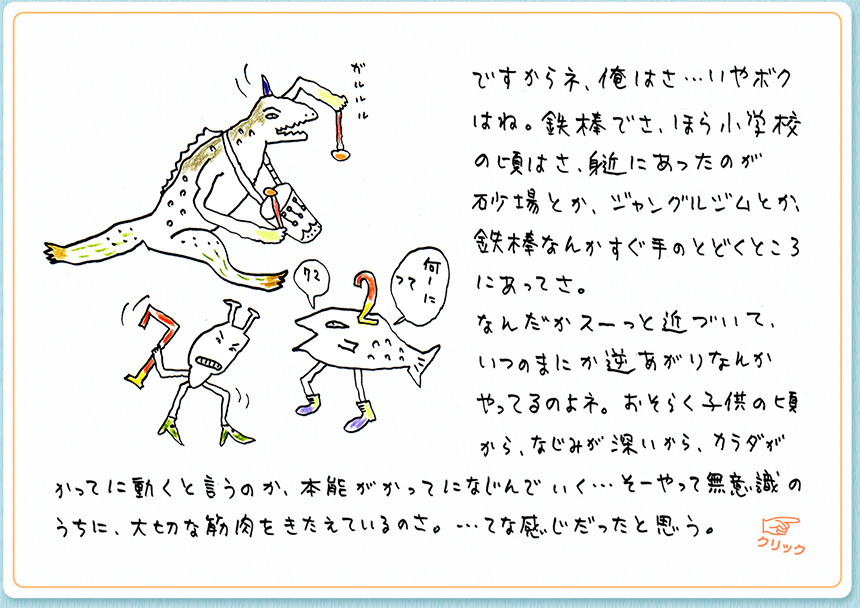 ガルルルル
何ーに
って
ですからネ、俺はさ…いやボク
はね。鉄棒でさ、ほら小学校
の頃はさ、身近にあったのが
砂場とか、ジャングルジムとか、
鉄棒なんかすぐ手のとどくところ
にあってさ。
なんだかスーっと近づいて、
いつのまにか逆あがりなんか
やってるのよネ。おそらく子供の頃
から、なじみが深いから、カラダが
かってに動くと言うのか、本能がかってになじんでいく…そーやって無意識の
うちに、大切な筋肉をきたえているのさ。…てな感じだったと思う。
クリック